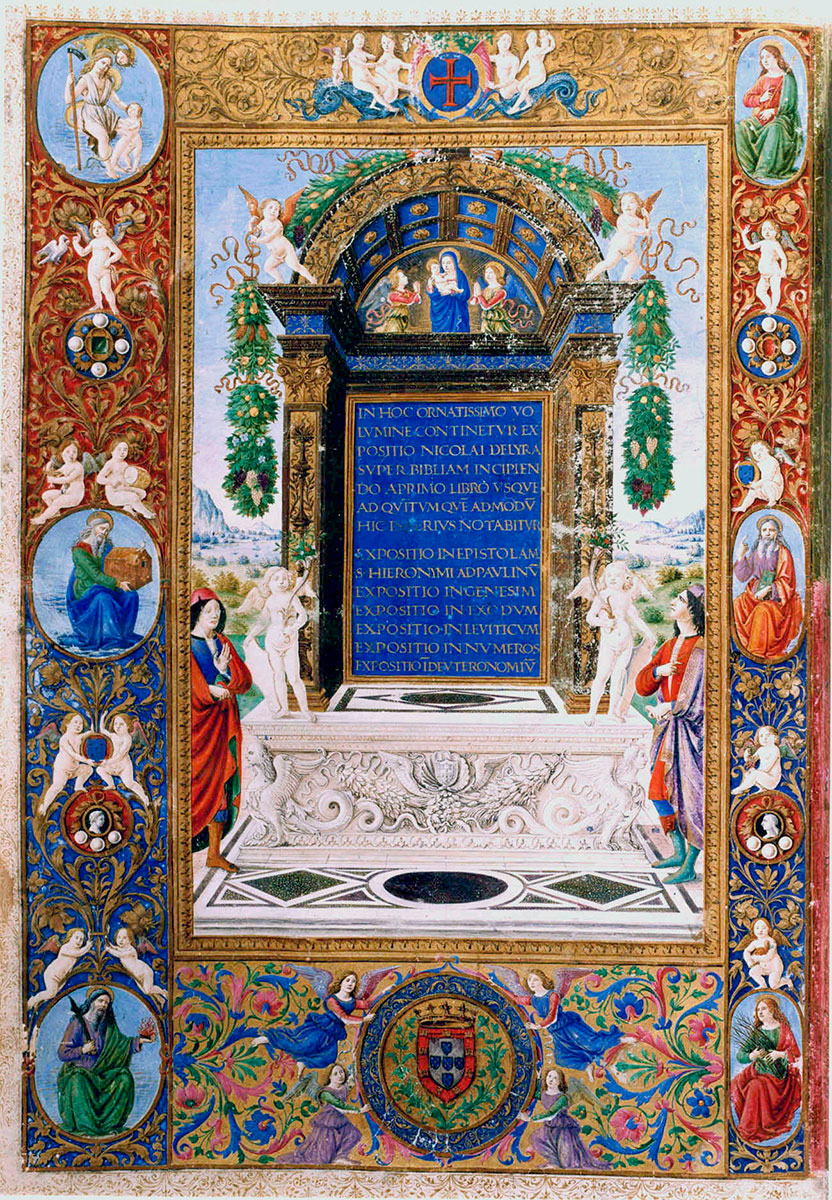 IN HOC ORNATISSIMO VO
LVMINE CONTINETVR EX
POSITIO NICOLAI DELYRA
SVPER BIBLIAM INCIPIEN
DO APRIMO LIBRO VSQVE
AD QVITVM QVE ADMODV̄
HIC INFERIVS NOTABITVR
EXPOSITIO IN EPISTOLAM
S HIERONYMI AD PAVLINV̄
EXPOSITIO IN GENESIM
EXPOSITIO IN EXODVM
EXPOSITIO IN LEVITICVM
EXPOSITIO IN NVMEROS
EXPOSITIO Ī DEVTERONOMIV̄